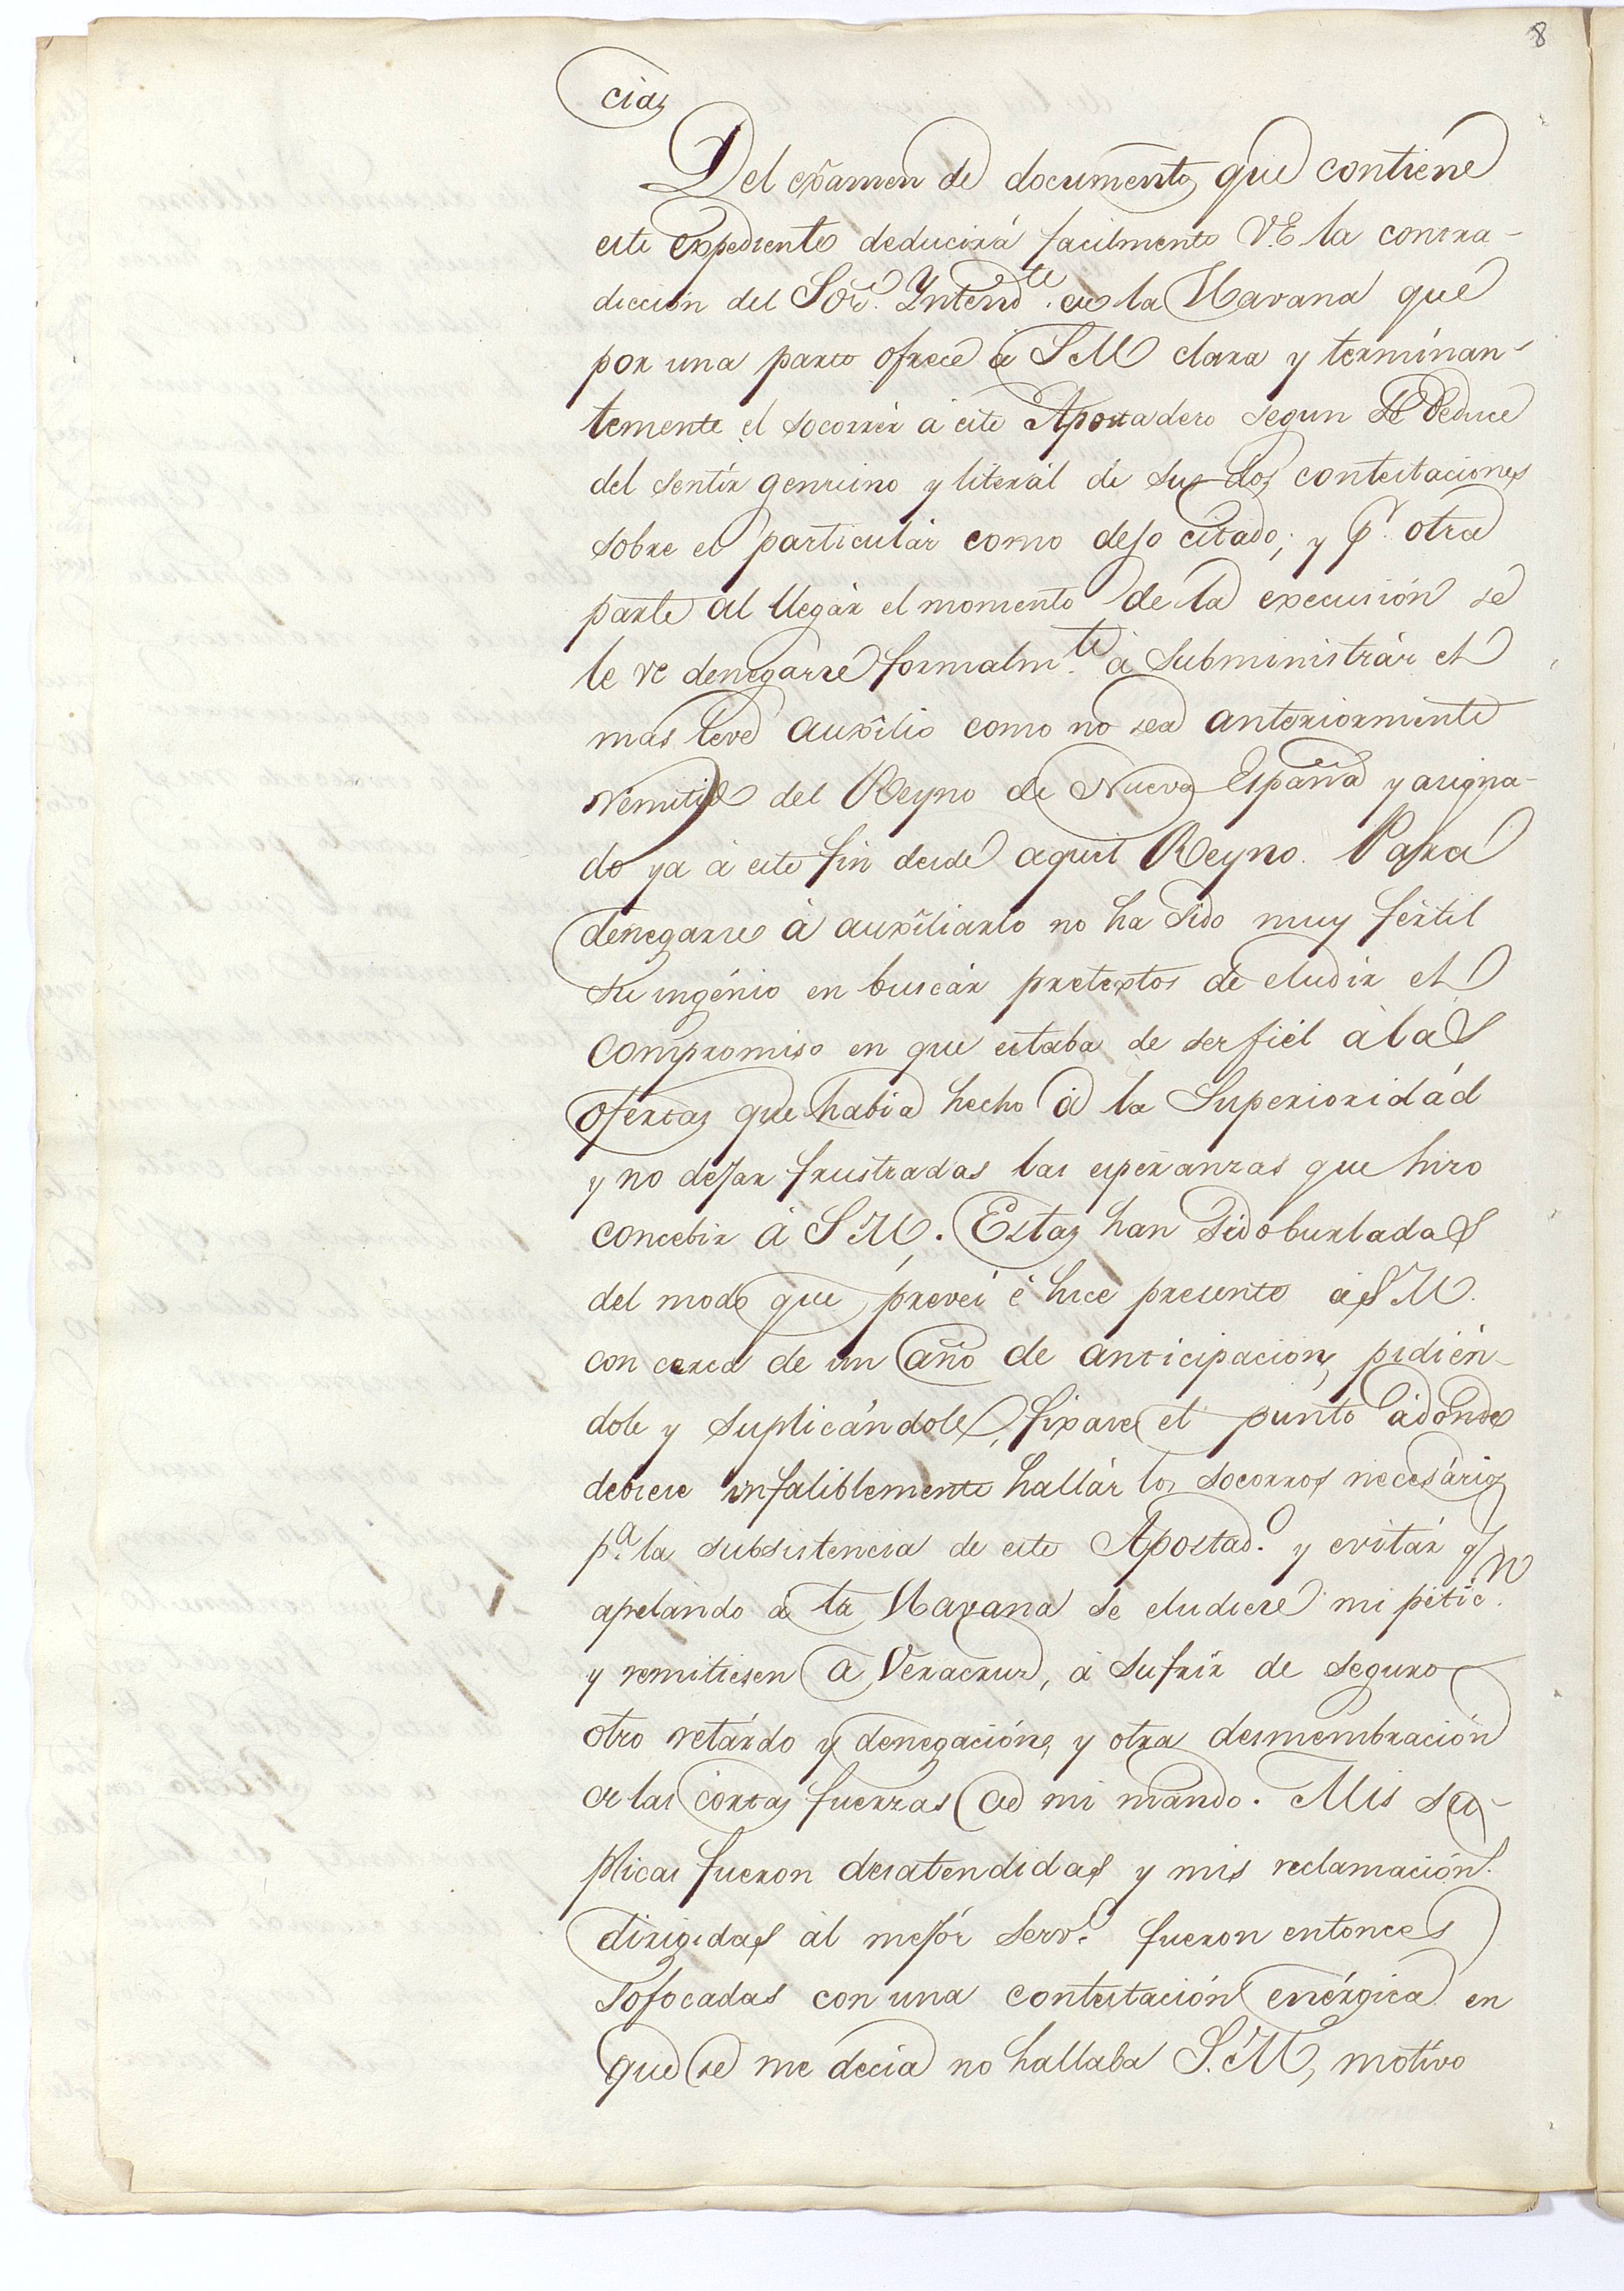 8
cias
Del exâmen de documentos que contiene
este expediente deducirá facilmente V.E la contra-
diccion del Sor. Yntendte. de la Havana que
por una parte ofrece à S M clara y terminan-
temente el socorrér à este Apostadero segun se deduce
del sentír genuino y literál de sus dos contestaciones
sobre el particulár como dejo citado; y pr. otra
parte al llegár el momento de la execusión se
le ve denegarse formalmte. à subministrár el
mas leve auxîlio como no sea anteriormente
remitido del Reyno de Nueva España y asigna-
do ya à este fin desde aquel Reyno. Para
denegarse à auxîliarlo no ha sido muy fértil
su ingénio en buscár pretextos de eludir el
compromiso en que estaba de ser fiél à las
ofertas que habia hecho à la Superioridád
y no dejar frustradas las esperanzas que hizo
concebir à S M. Estas han sido burladas
del modo que preveí è hice presente à S M.
con cerca de un año de anticipacion, pidién-
dole y suplicándole, fixase el punto adonde
debiese infaliblemente hallár los socorros necesários
pa. la subsistencia de este Apostado. y evitár q
apelando à la Havana se eludiese mi petición.
y remitiesen à Veracruz, à sufrír de seguro
otro retárdo y denegación, y otra desmembración
de las cortas fuerzas de mi mando. Mis sú-
plicas fueron desatendidas y mis reclamacións.
dirigidas àl mejór servo. fueron entonces
sofocadas con una contestación enérgica en
que se me decia no hallaba S. M, motívo